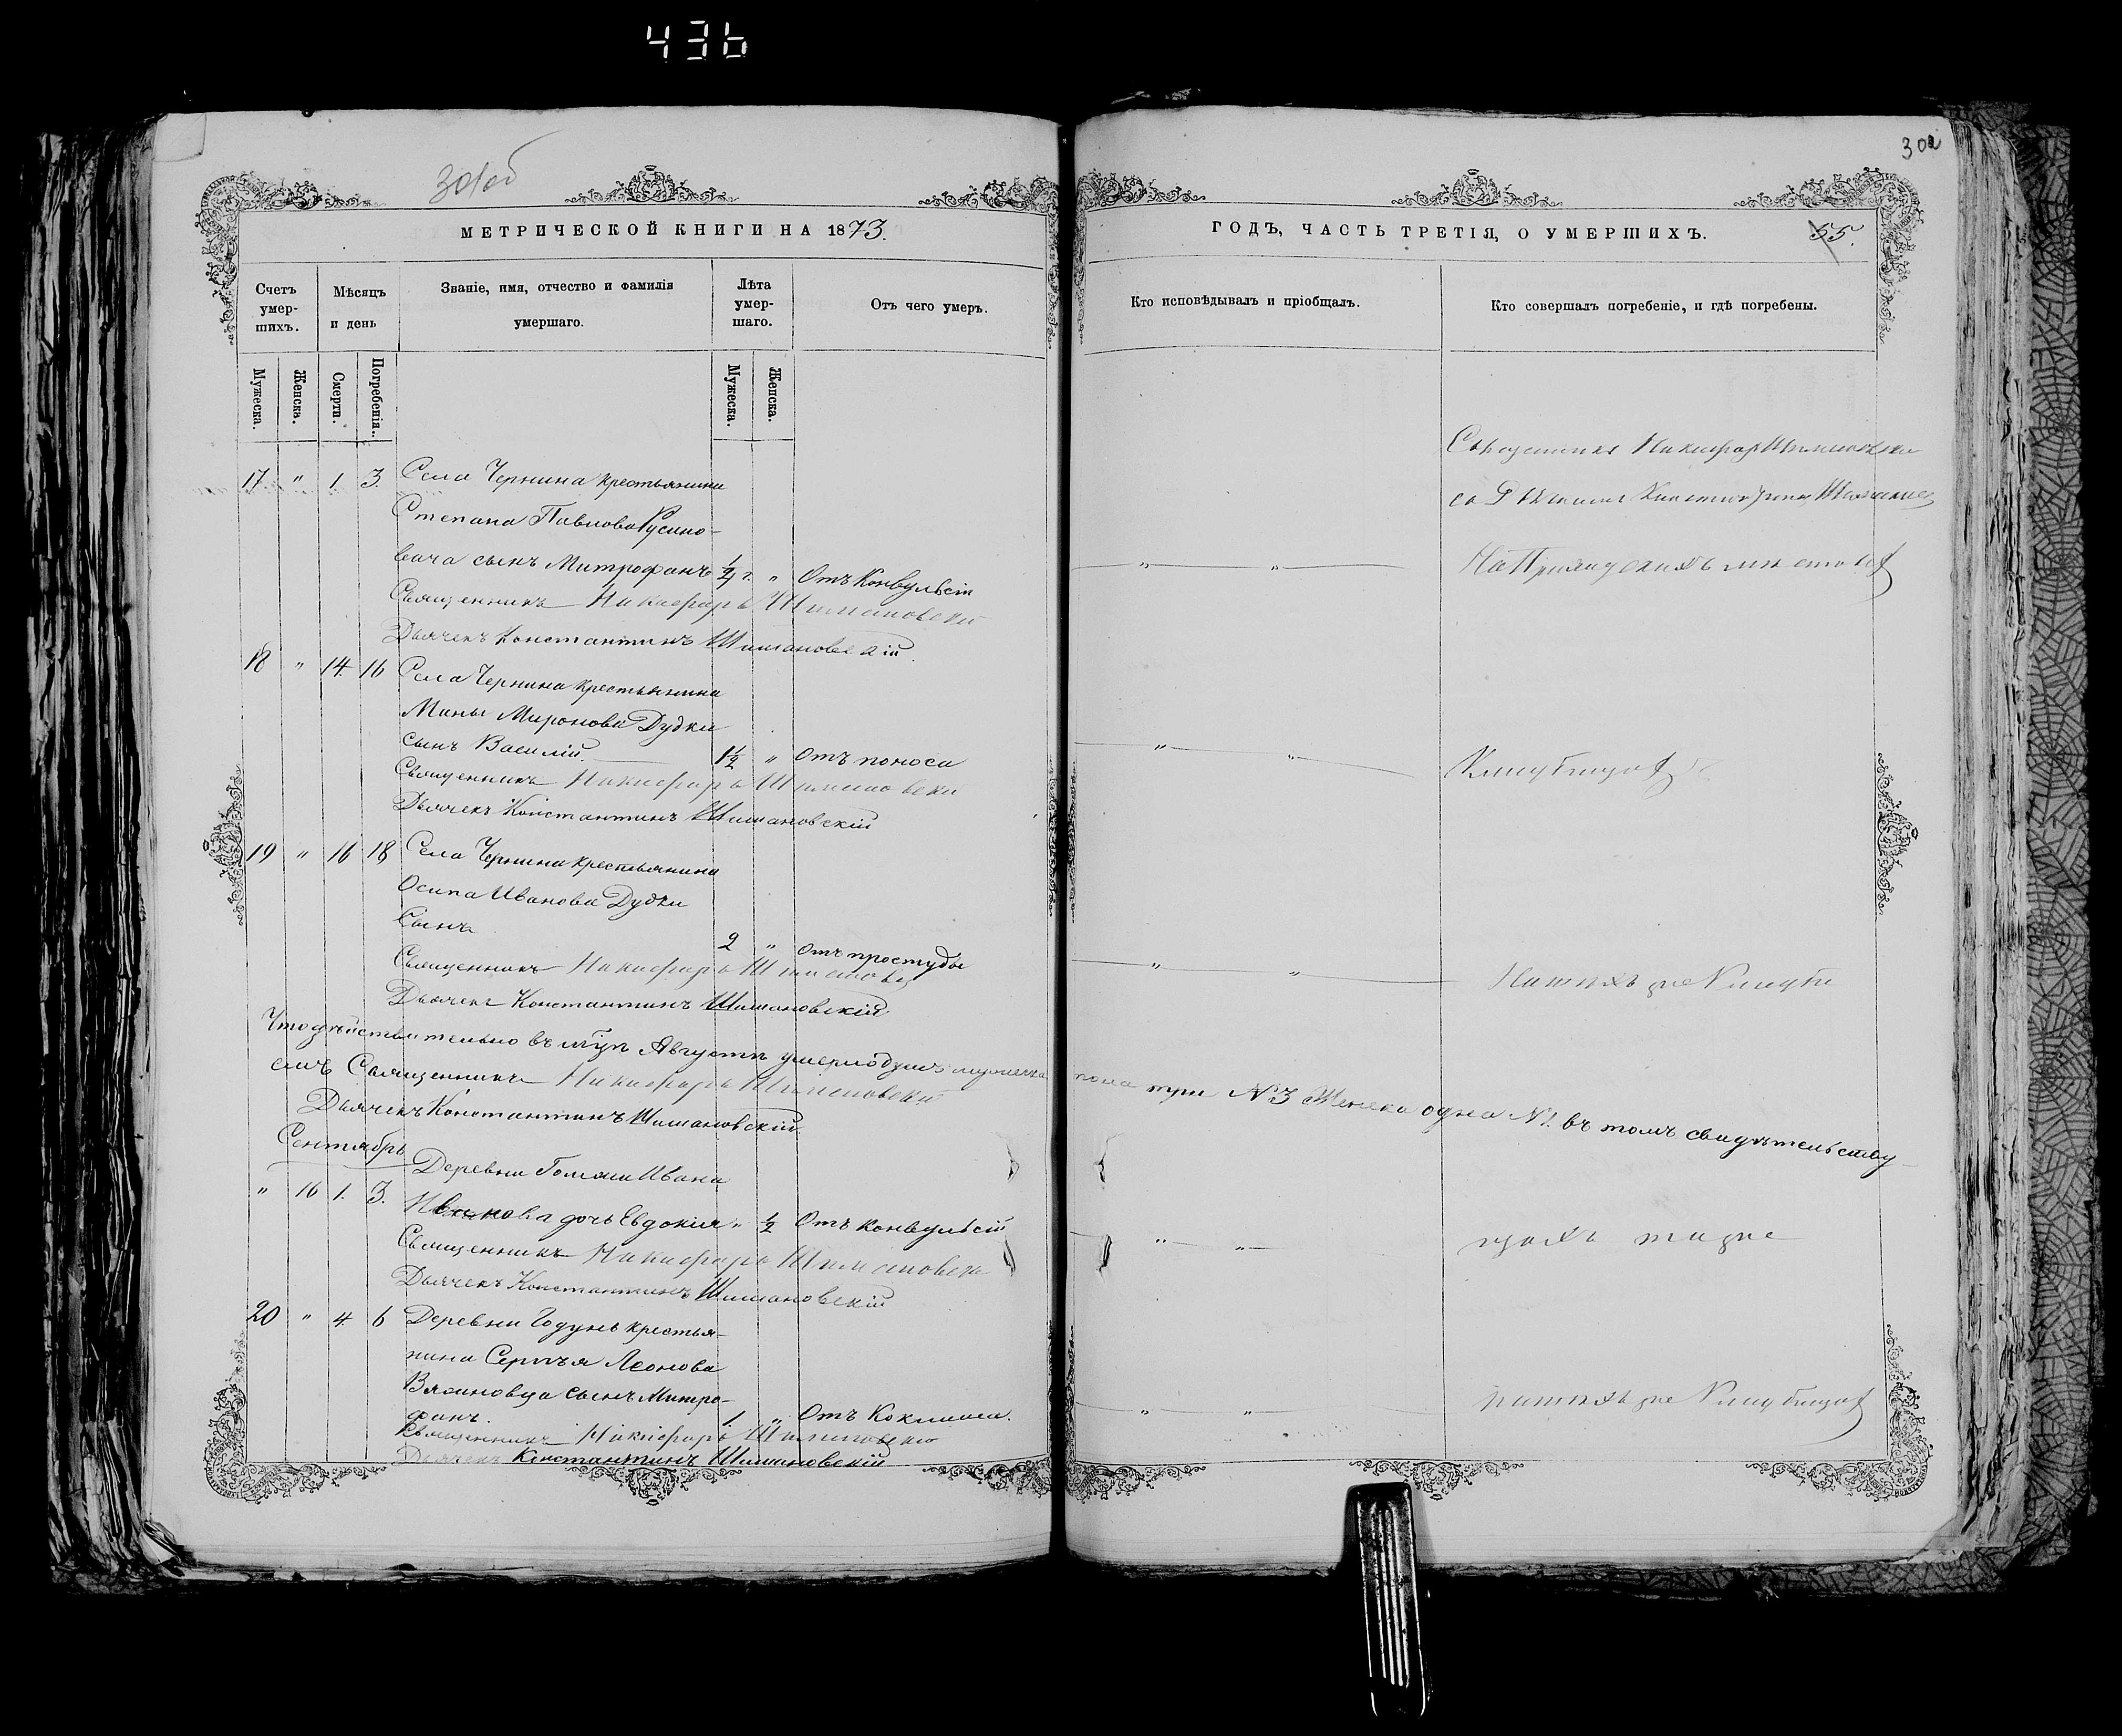 436
301об
302
МЕТРИЧЕСКОЙ КНИГИ НА 1873.
ГОДЪ, ЧАСТЬ ТРЕТІЯ, О УМЕРШИХЪ.
55.
Счетъ умер-шихъ.
Мѣсяцъ и день
Званіе, имя, отчество и фамилія умершаго.
Лѣта умер-шаго.
Отъ чего умеръ.
Кто исповѣдывалъ и пріобщалъ.
Кто совершалъ погребеніе, и гдѣ погребены.
Мужеска.
Женска.
Смерти.
Погребенія.
Мужеска.
Женска.
17 " 1. 3. Села Чернина крестьянина
Степана Павлова Русино-
вича сынъ Митрофанъ ½ г. " Отъ Конвульсіи
Священникъ Никифоръ Шимановскій
Дьячекъ Константинъ Шимановскій.
Священникъ Никифоръ Шимановскій
съ Константиномъ
На
18 " 14. 16 Села Чернина крестьянина
Мины Миронова Дудки
сынъ Василій. 1½ " Отъ поноса
Священникъ Никифоръ Шимановскій
Дьячекъ Константинъ Шимановскій
Кладбищах
19 " 16 18 Села Чернина крестьянина
Осипа Иванова Дудки
Сынъ 2 " Отъ простуды
Священникъ Никифоръ
Дьячекъ Константинъ Шимановскій
На тѣхъ же
Что дѣйствительно въ Августѣ умерло мужеска пола три №3 Женска одна №1. въ томъ свидѣтельству-
емъ Священникъ Никифоръ Шимановскій
Дьячекъ Константинъ Шимановскій.
Сентябрь
" 16 1. 3. Деревни Ивана
Иванова дочь Евдокія " ½ Отъ конвульсій
Священникъ Никифоръ Шимановскій
Дьячекъ Константинъ Шимановскій
20 " 4. 6 Деревни Годунь крестья-
нина Сергѣя Леонова
сынъ Митро-
фанъ. 1. " Отъ Коклюша.
Священникъ Никифоръ Шимановскій
Дьячекъ Константинъ Шимановскій
на тѣхъ же Кладбищах